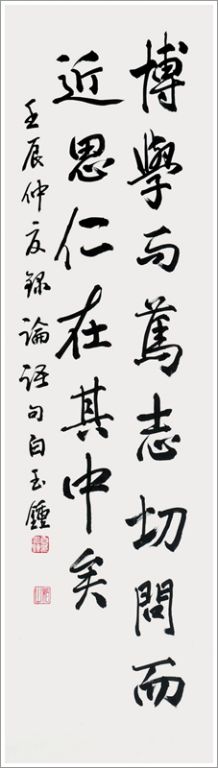 博學而篤志切問而
近思仁在其中矣
壬辰仲夏錄論語句白玉鍾